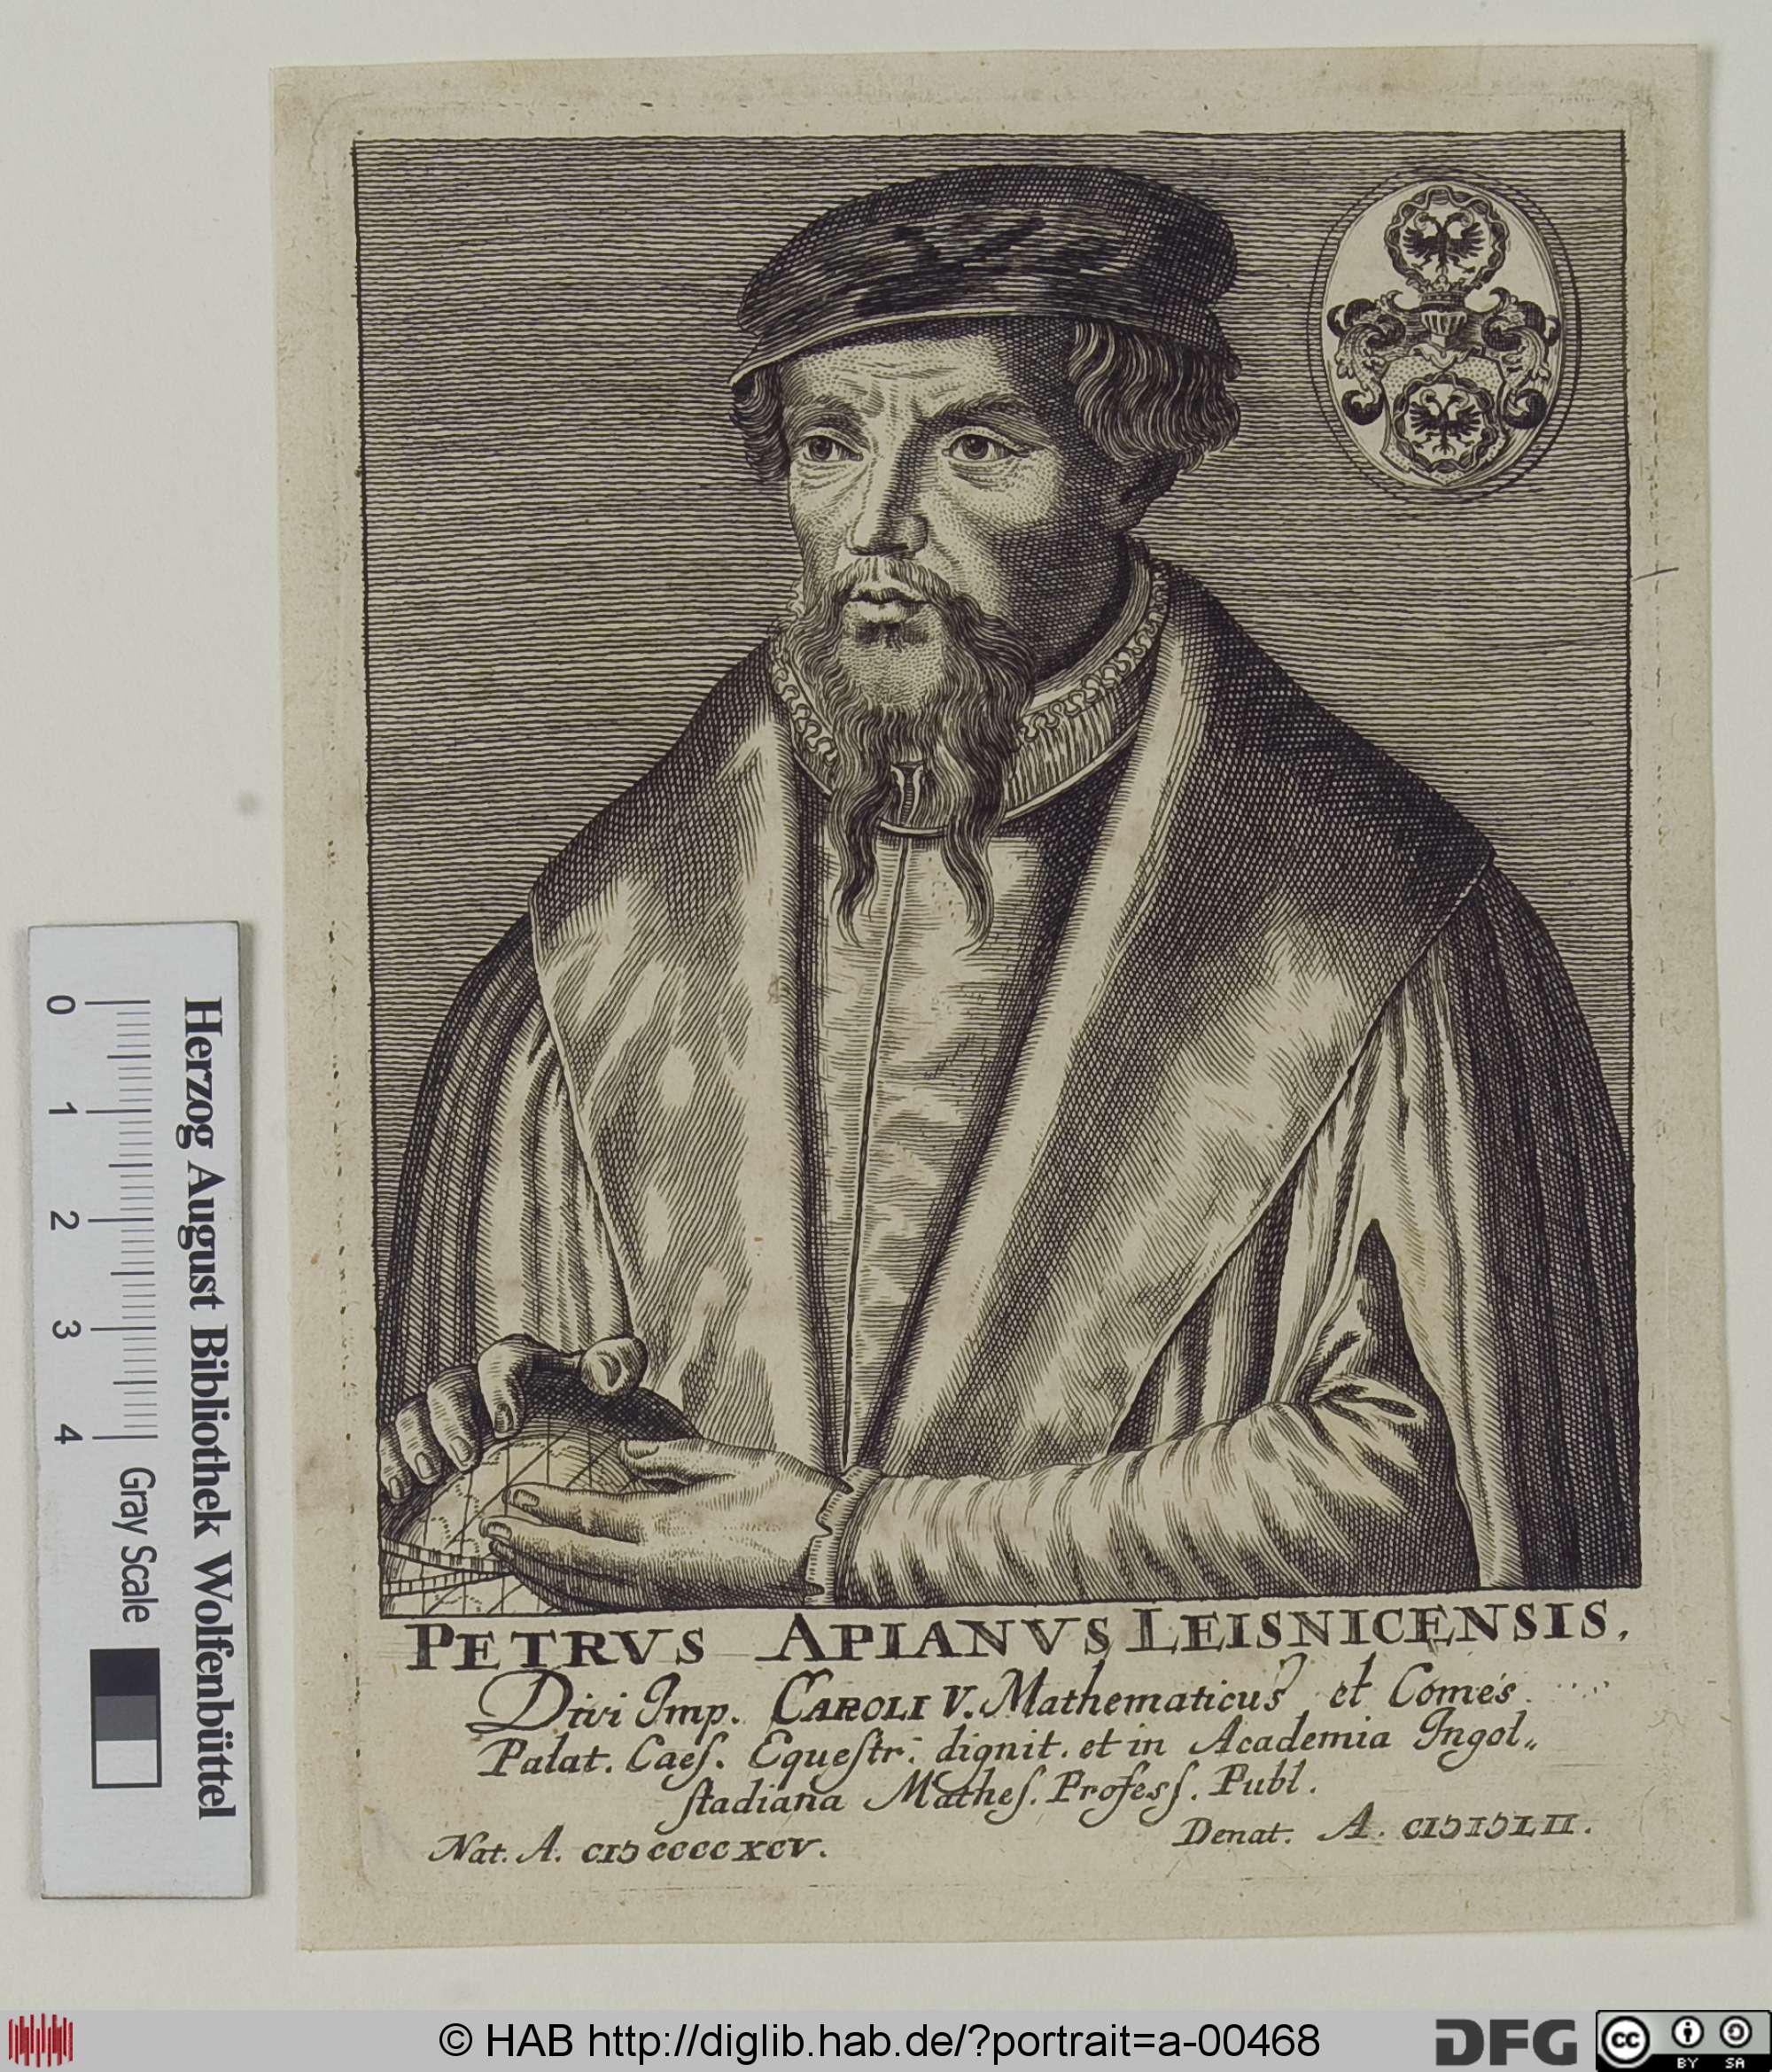 PETRVS APIANVS LEISNICENSIS.
Divi Imp. CAROLI V. Mathematicus et Comes
Palat. Caeſ. Equeſtr: dignit. et in Academia Ingol„
ſtadiana Matheſ. Profesſ. Publ.
Nat. A. CIƆ CCCC XCV.
Denat. A. CIƆIƆLII.
Herzog August Bibliothek Wolfenbüttel
0 1 2 3 4 Gray Scale
© HAB http://diglib.hab.de/?portrait=a-00468
DFG
cc BY SA